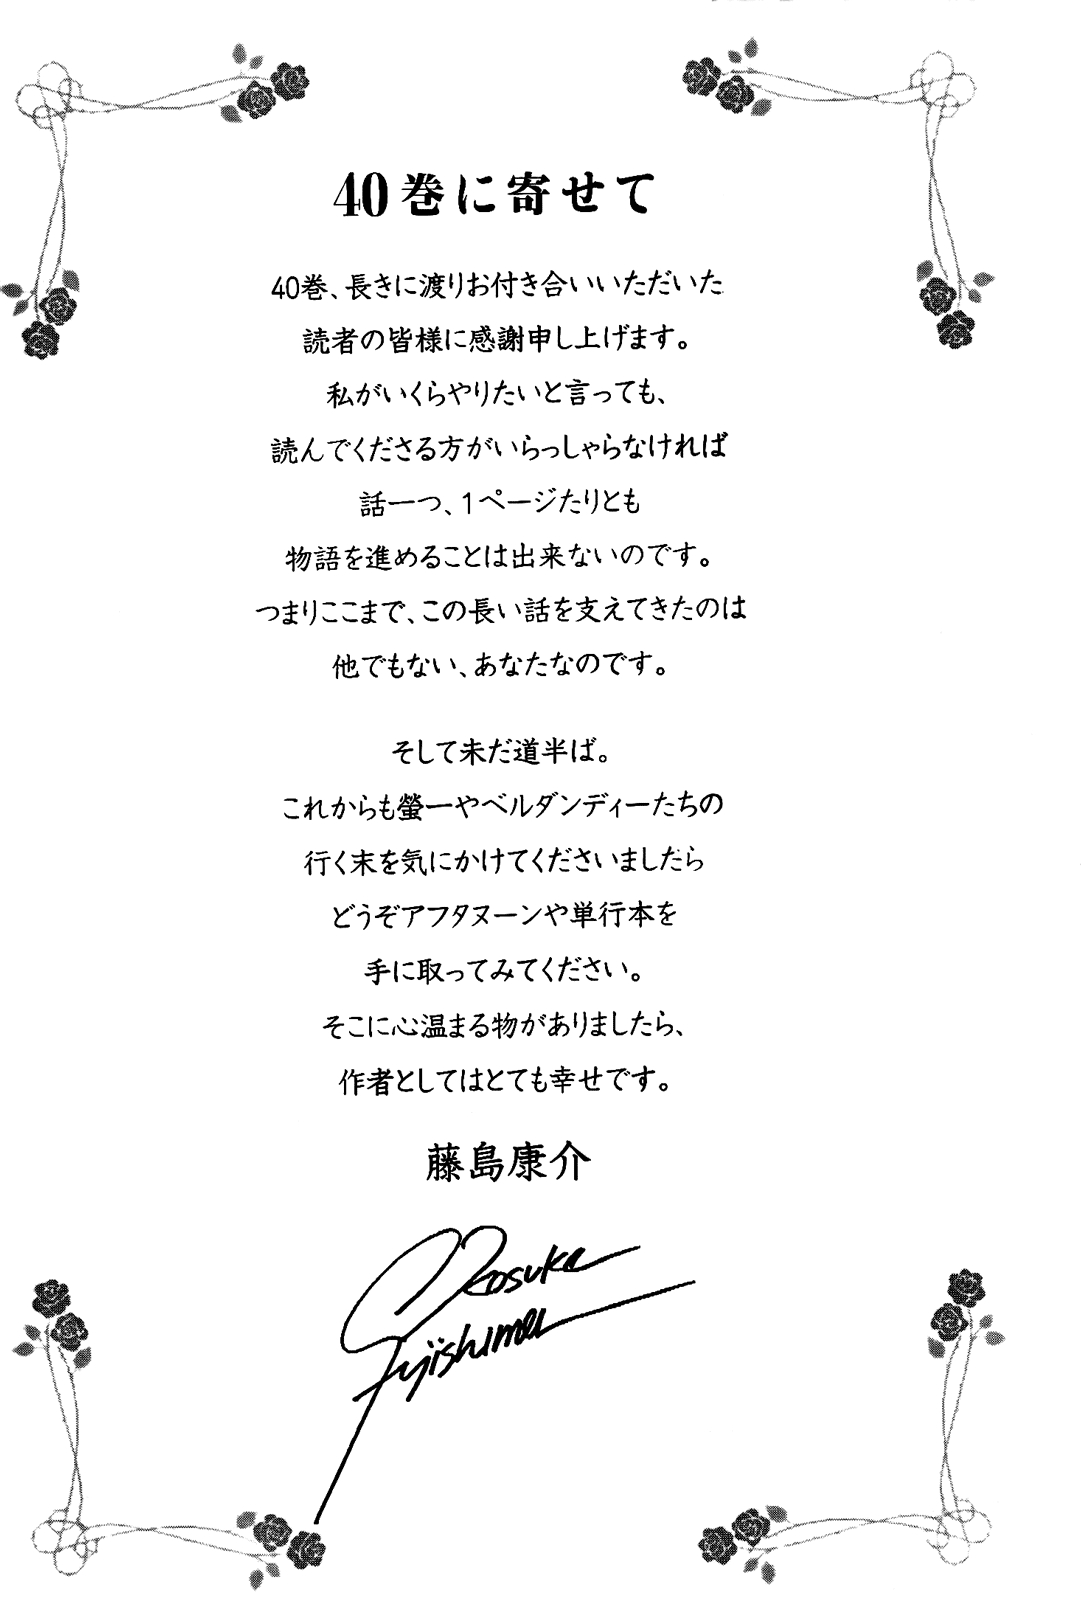 40巻に寄せて
40巻、長きに渡りお付き合いいただいた
読者の皆様に感謝申し上げます。
私がいくらやりたいと言っても、
読んでくださる方がいらっしゃらなければ
話一つ、1ページたりとも
物語を進めることは出来ないのです。
つまりここまで、この長い話を支えてきたのは
他でもない、あなたなのです。
そして未だ道半ば。
これからも螢一やベルダンディーたちの
行く末を気にかけてくださいましたら
どうぞアフタヌーンや単行本を
手に取ってみてください。
そこに心温まる物がありましたら、
作者としてはとても幸せです。
藤島康介
Kosuke
Fujishima